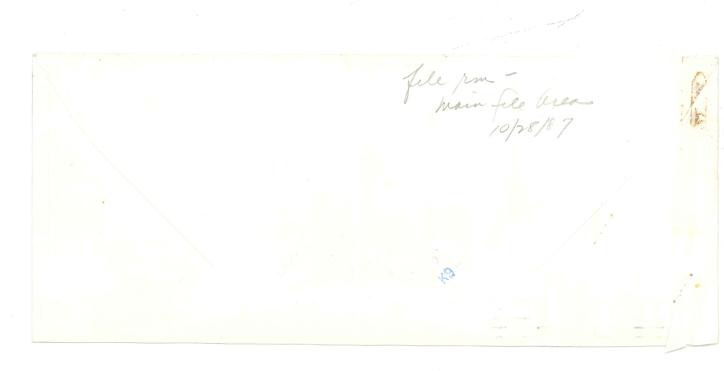 file rm –
main file area
10/28/87
K9